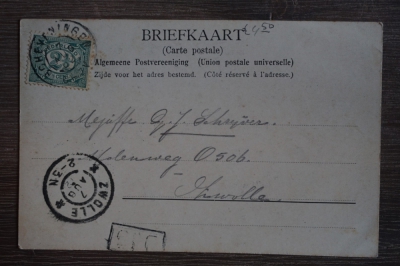 BRIEFKAART
(Carte postale)
Algemeene Postvereeniging (Union postale universelle)
Zijde voor het adres bestemd. (Côté réservé à l'adresse.)
SCHEVENINGEN
Mejuffr. G. J. Schrijver.
Molenweg O 506.
Zwolle
ZWOLLE
2-3N
AUG